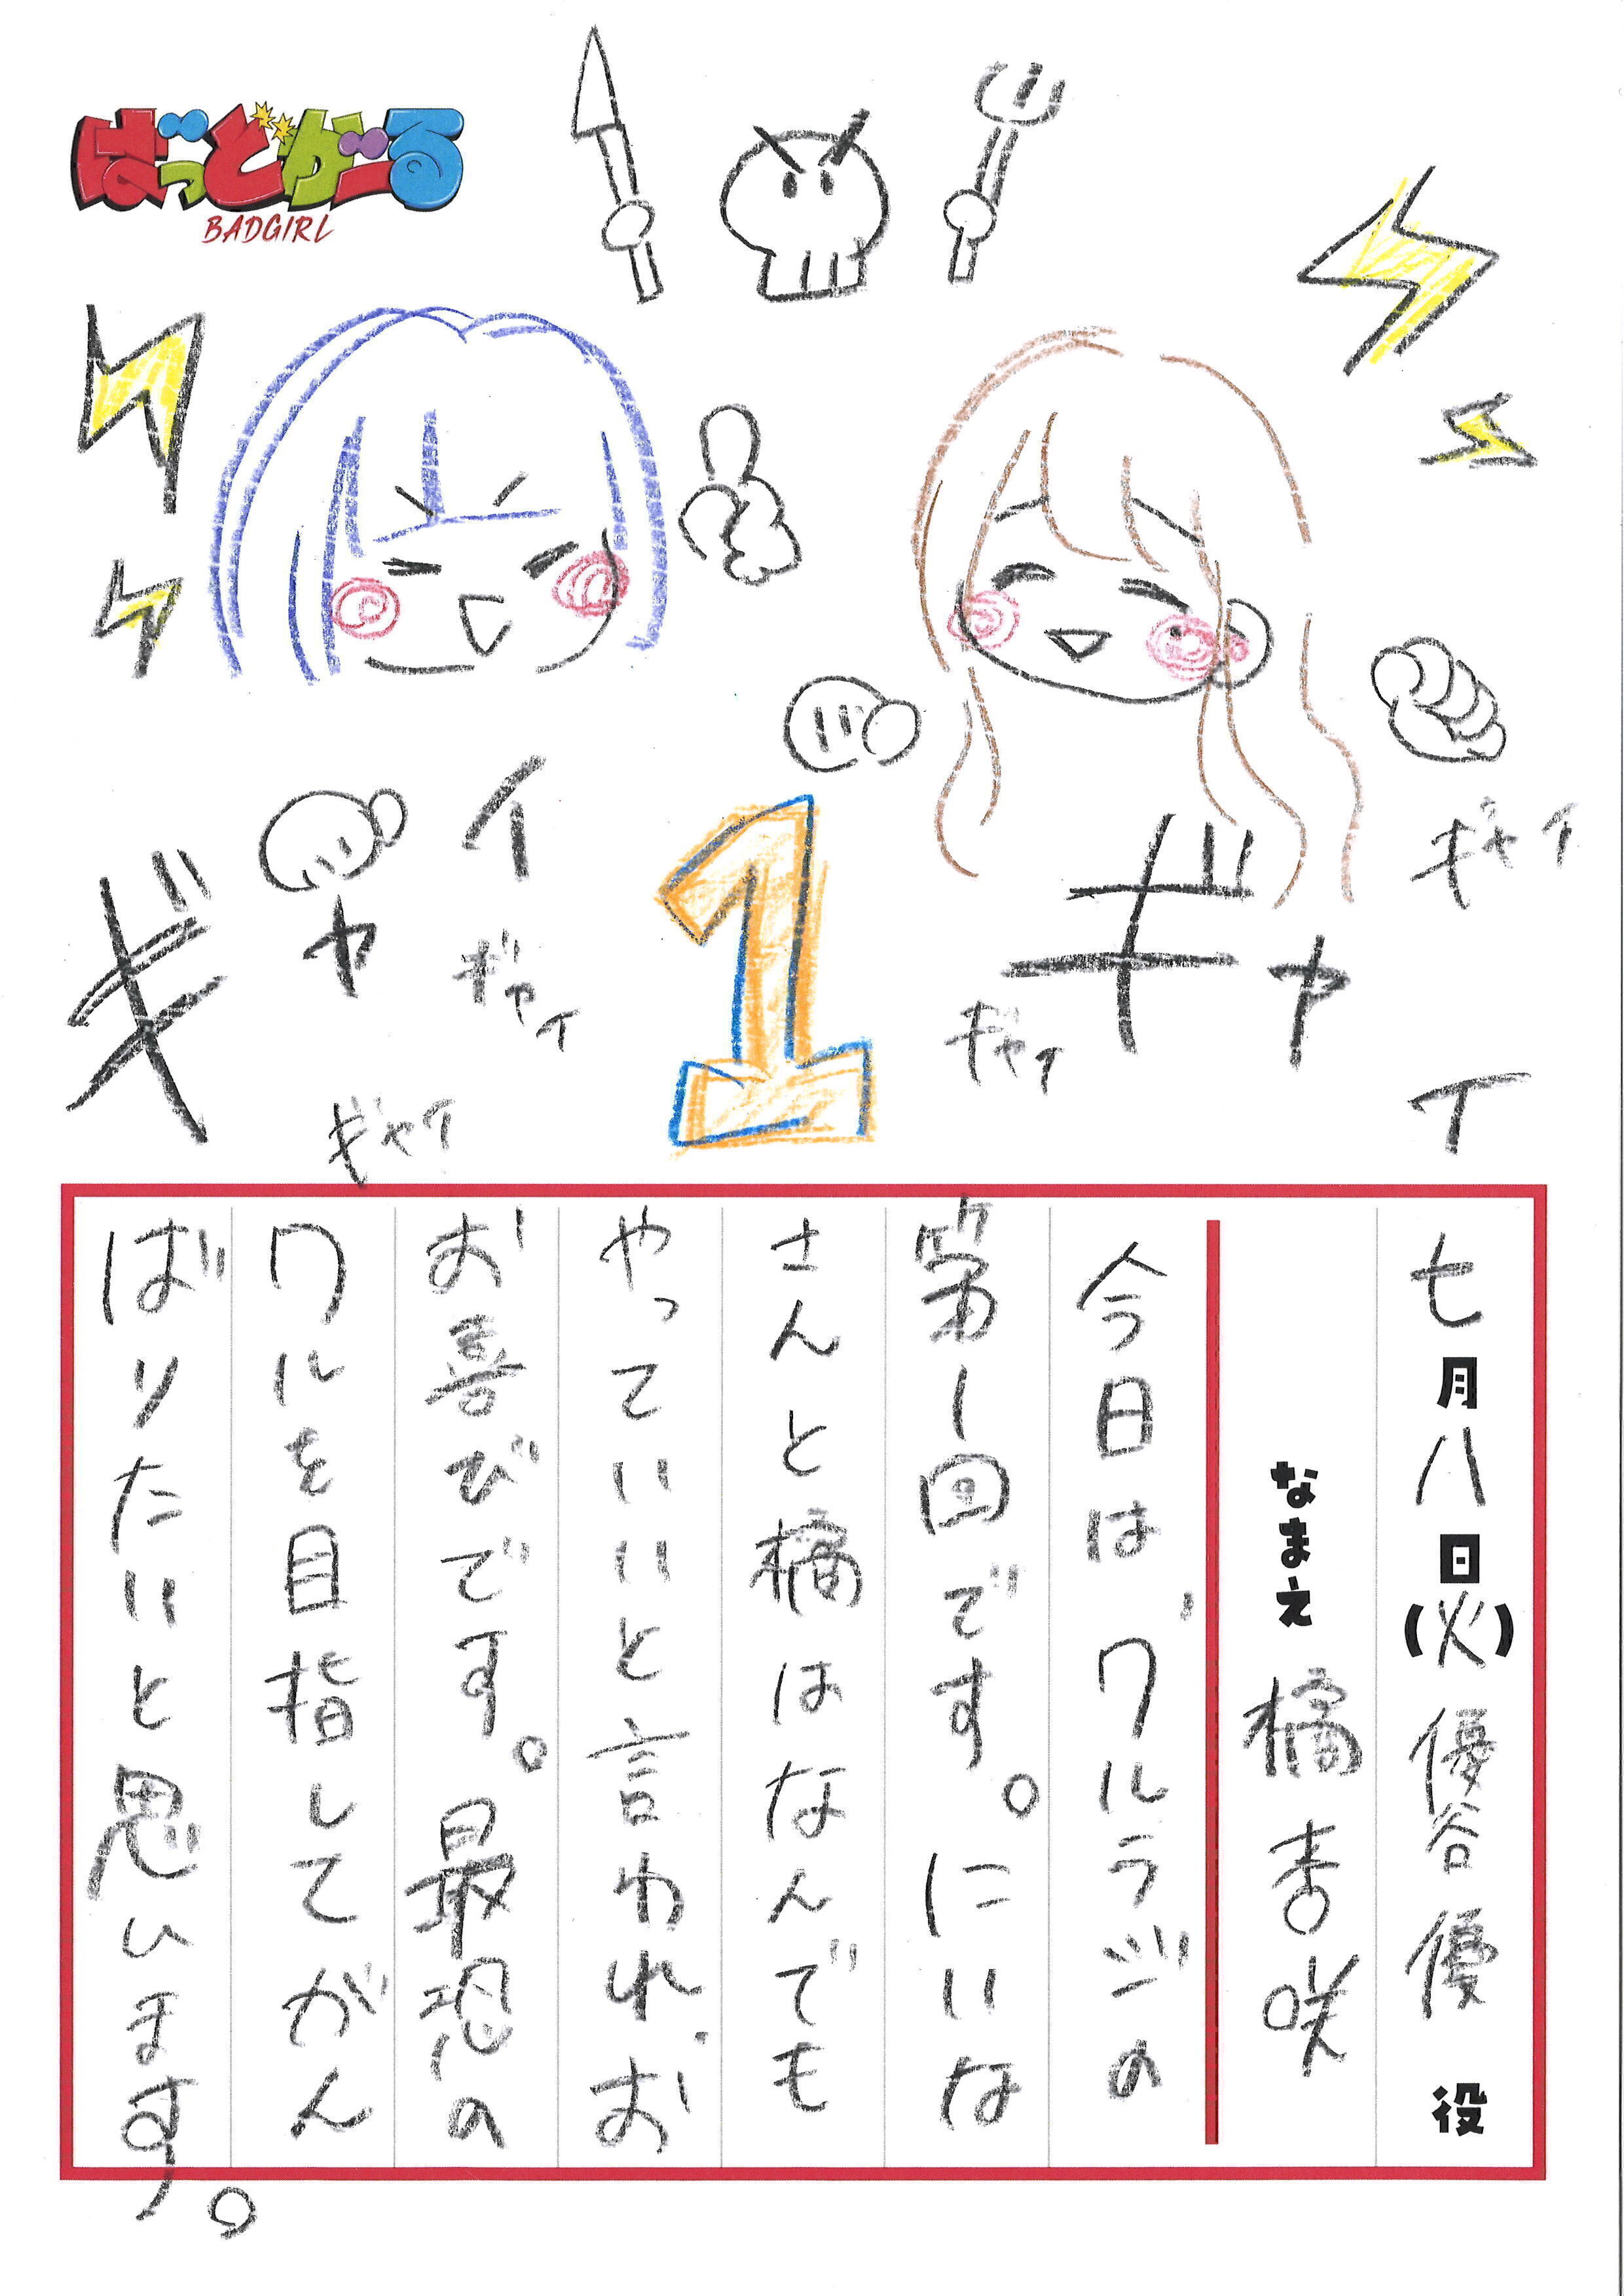 ばっどがーる
BADGIRL
ギャイ
ギャイ
ギャイ
1
ギャイ
ギャイ
ギャイ
七月八日(火) 優谷優 役
なまえ 橘杏咲
今日は、ワルラジの
第1回です。にいな
さんと橘はなんでも
やっていいと言われ、お
お喜びです。最恐の
ワルを目指してがん
ばりたいと思います。